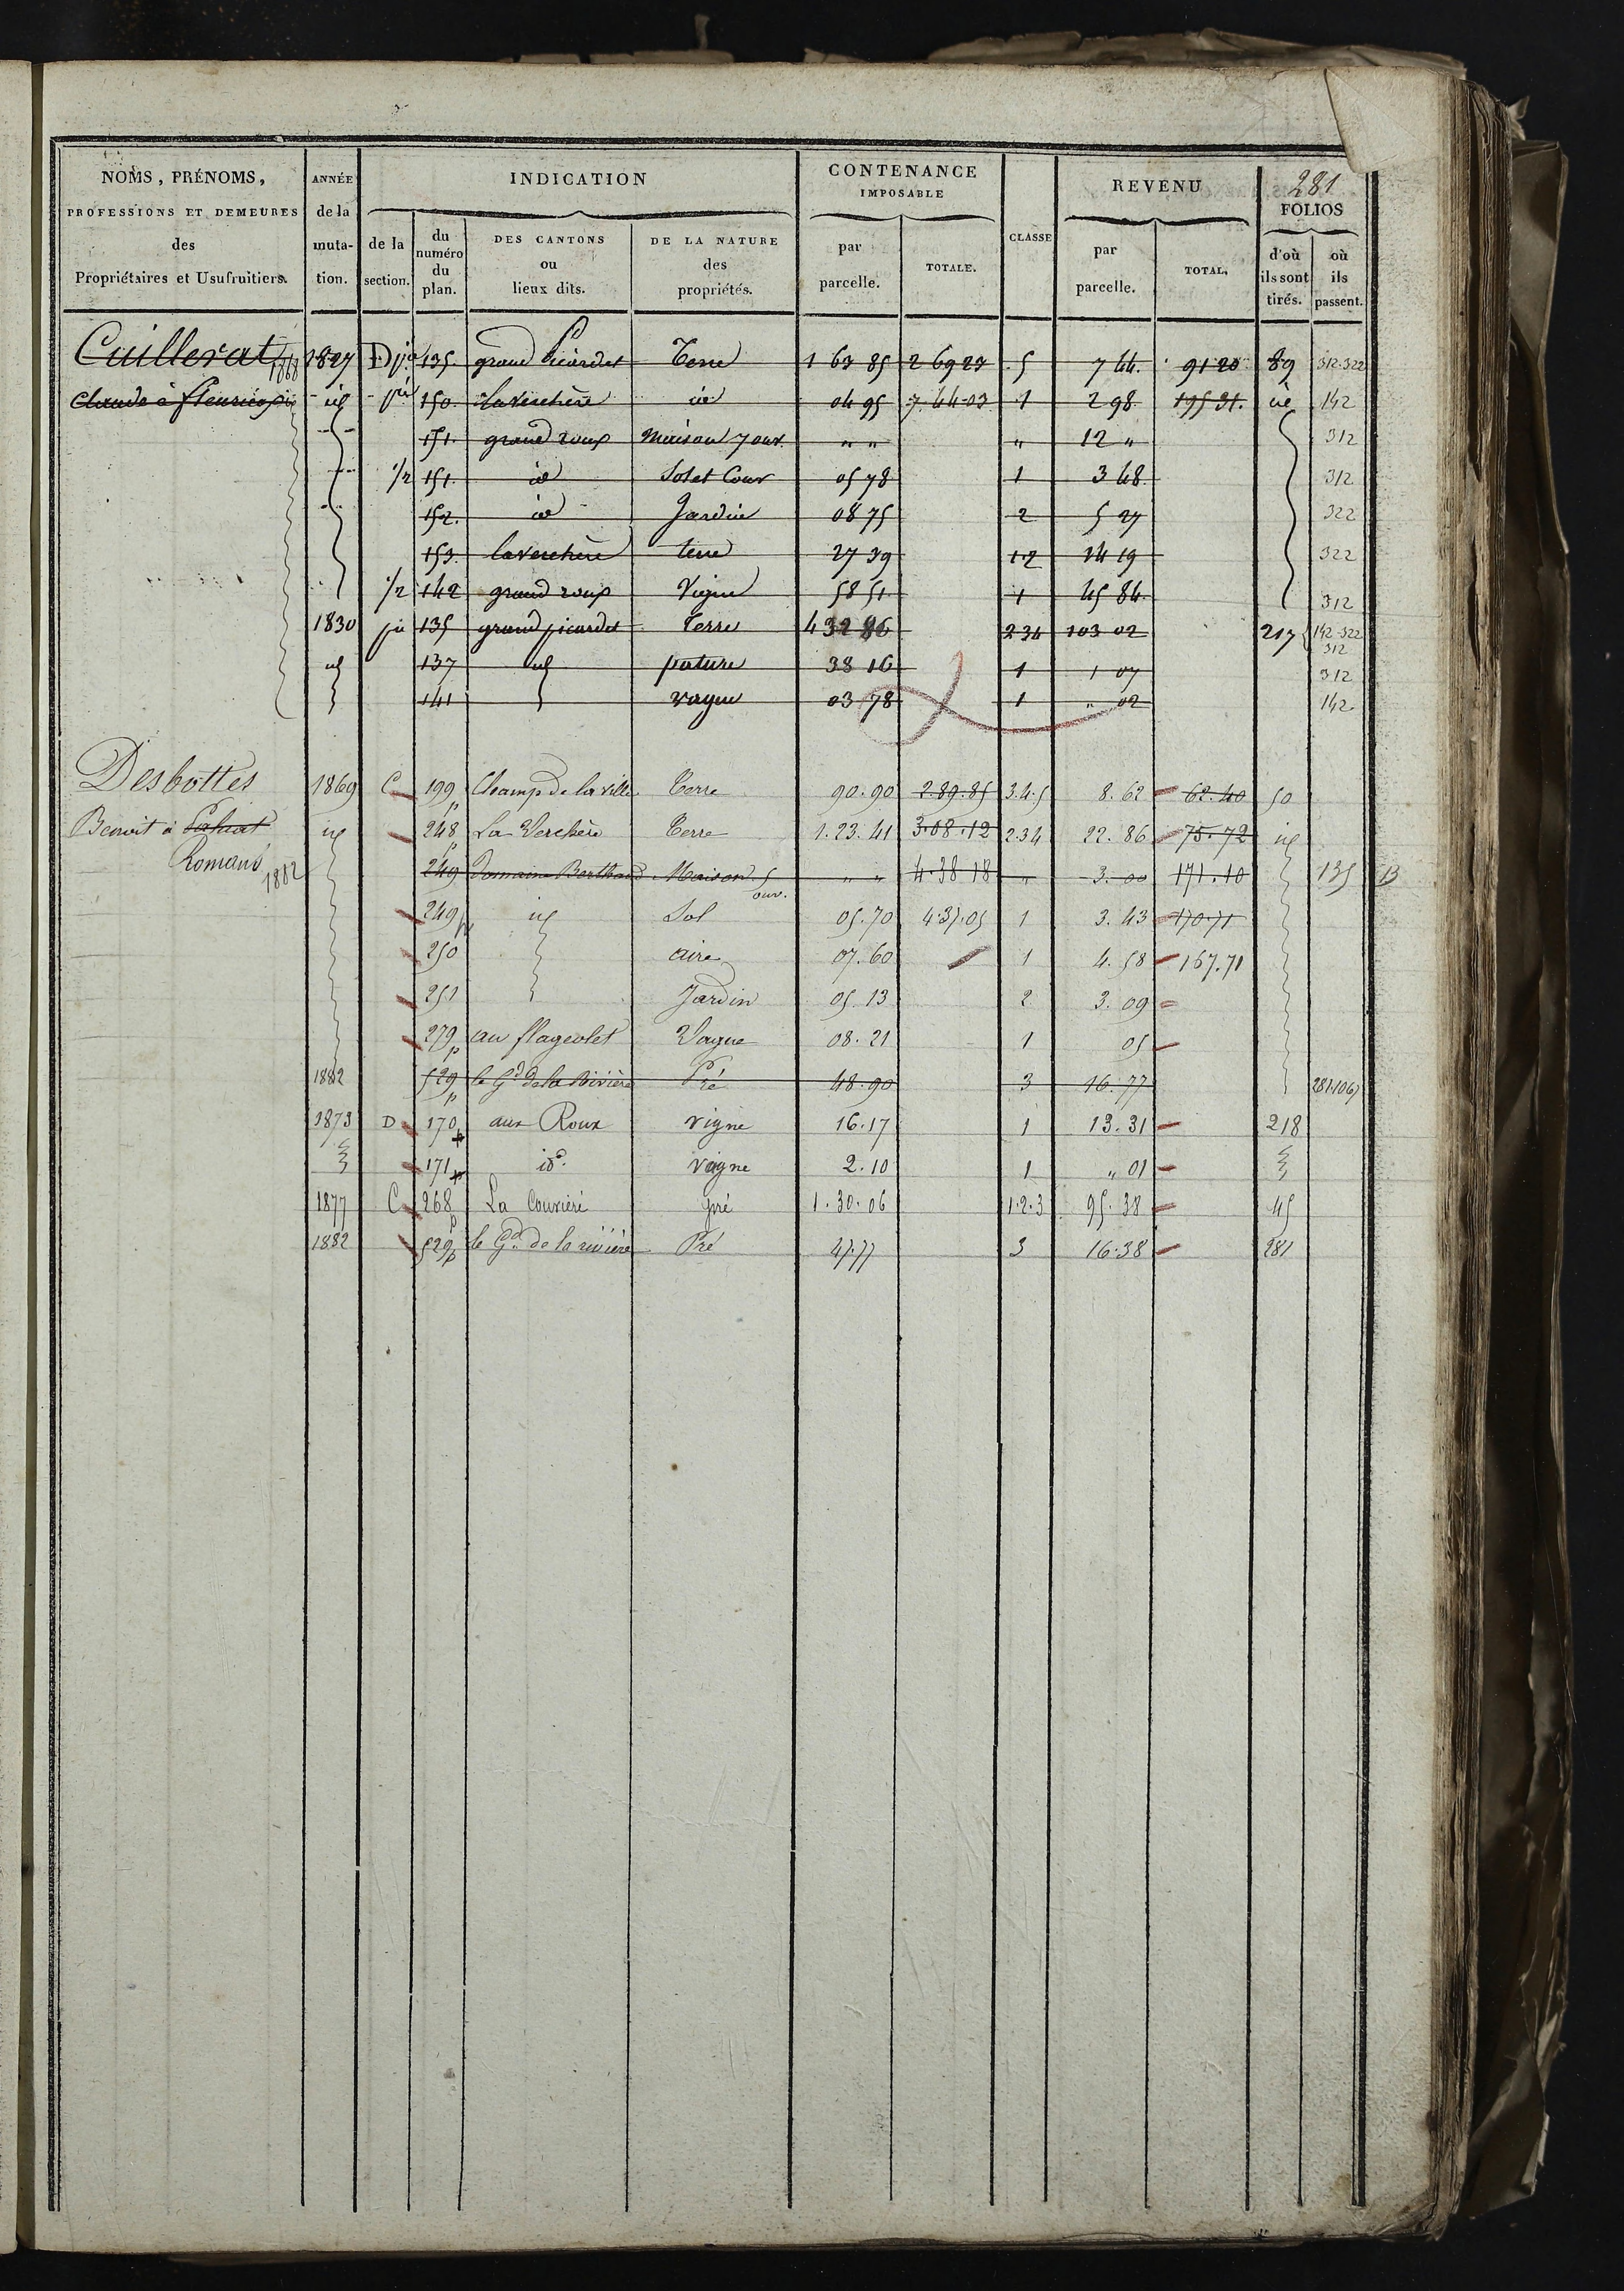 281
NOMS, PRÉNOMS, PROFESSIONS ET DEMEURES des Propriétaires et Usufruitiers.
ANNÉE de la muta-tion.
INDICATION
de la section.
du numéro du plan.
DES CANTONS ou lieux dits.
DE LA NATURE des propriétés.
CONTENANCE IMPOSABLE
par parcelle.
TOTALE.
CLASSE
REVENU
par parcelle.
TOTAL.
FOLIOS
d'où ils sont tirés.
où ils passent.
Cuillerat 1868 1827 D 135. grand Picardet Terre 1 63 85 2 69 23 5 7 44. 91 20 89 312.322
Claude à fleurie id 150. la verchère id 04 95 7.44.03 1 2 98 195 31. id 142
151. grand roux Maison 7 ouv. " " " 12 " 312
1/2 151. id Sol et Cour 05 78 1 3 48 312
152. id Jardin 08 75 2 5 27 322
153. la verchère terre 27 39 1.2 14 19 322
1/2 142 grand roux Vigne 58 51. 1 45 84. 312
1830 135 grand picardet Terre 4 32 86 2 3 4 103 02 217 142.322 312
id 137 id pature 38 16 1 1 07 312
141 vague 03 78 1 " 02 142
Desbottes 1869 C 199 p Champ de la ville Terre 90.90 2.89.85 3.4.5 8.62 62.40 50
Benoit à id 248 p La Verchère Terre 1.23.41 3.08.12 2 3 4 22.86 75.72 id
Romans 1882 249 Domaine Berthaud Maison 5 ouv. " " 4.38.18 " 3.00 171.10 135 B
249 p id Sol 05.70 4.37.05 1 3.43 170.71
250 aire 07.60 1 4.58 167.71
251 Jardin 05.13 2 3.09
279 p au flageolet Vague 08.21 1 05
1882 529 p le Gd de la Rivière Pré 48.90 3 16.77 281.
1873 D 170 aux Roux vigne 16.17 1 13.31 218
171 id. vague 2.10 1 " 01
1877 C 268 p La Couvière pré 1.30.06 1.2.3 95.38 45
1882 529 p le Gd. de la rivière Pré 47.77 3 16.38 281